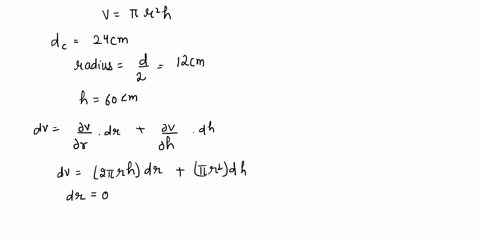 V = π r² h
d_c = 24cm
radius = d/2 = 12cm
h = 60 cm
dv = ∂v/∂r . dr + ∂v/∂h . dh
dv = (2πrh) dr + (πr²) dh
dr = 0